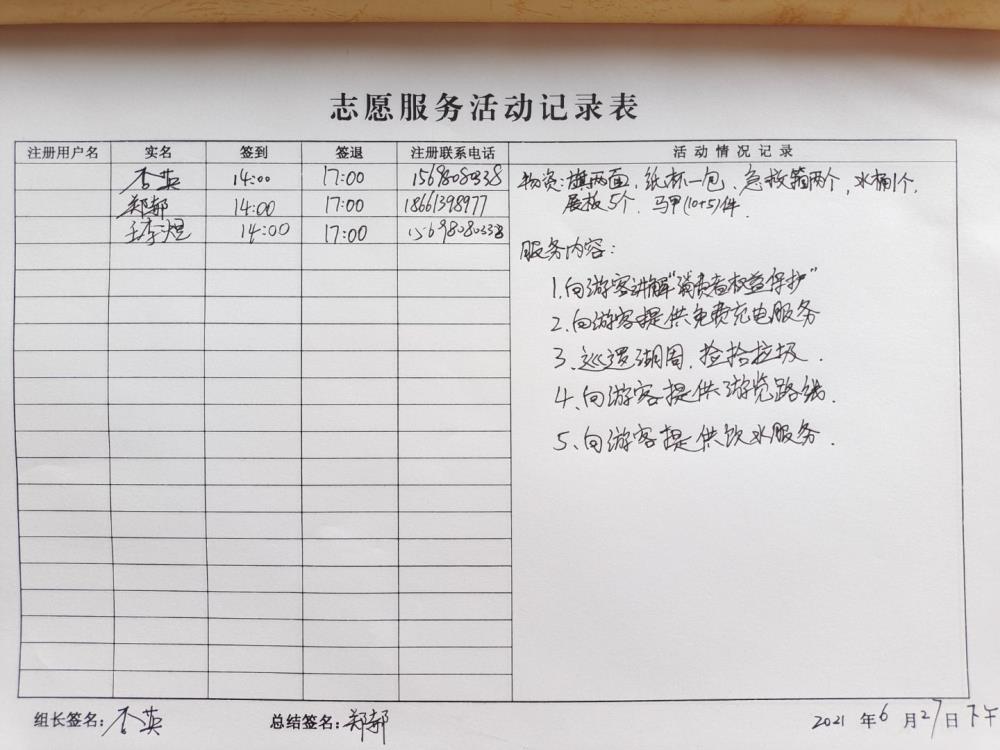 志愿服务活动记录表
注册用户名 实名 签到 签退 注册联系电话 活动情况记录
杏英 14:00 17:00 15698080338
郑郁 14:00 17:00 18661398977
14:00 17:00 15698080338
物资:旗两面,纸杯一包、急救箱两个,水桶1个,
展板5个、马甲(10+5)件.
服务内容:
1.向游客讲解"消费者权益保护"
2.向游客提供免费充电服务
3、巡逻湖周,捡拾垃圾.
4、向游客提供游览路线.
5、向游客提供饮水服务.
组长签名:杏英 总结签名:郑郁 2021年6月27日下午